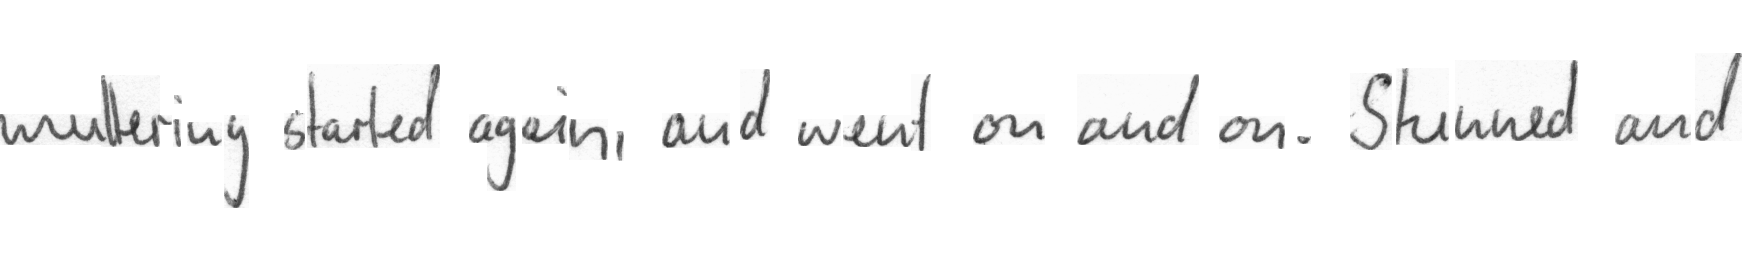 muttering started again, and went on and on. Stunned and